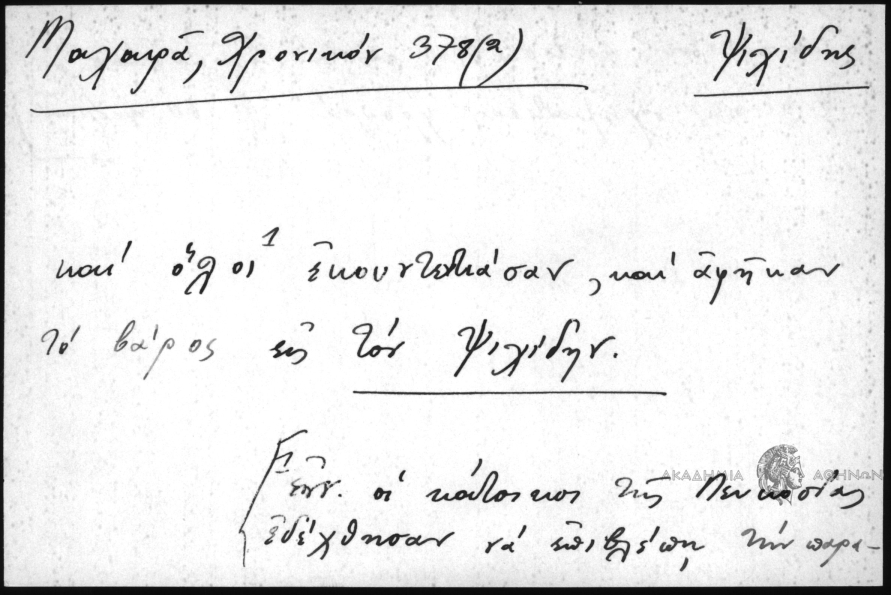 Μαχαιρᾶ, Χρονικόν 378(α) Ψιλίδης
καί ὅλοι¹ ἐκουντεντιάσαν, καί ἀφῆκαν
τό βάρος εἰς τόν Ψιλίδην.
[¹ ἐνν. οἱ κάτοικοι τῆς Λευκοσίας
ἐδέχθησαν νά ἐπιβλέπῃ τήν παρα-
ΑΚΑΔΗΜΙΑ ΑΘΗΝΩΝ